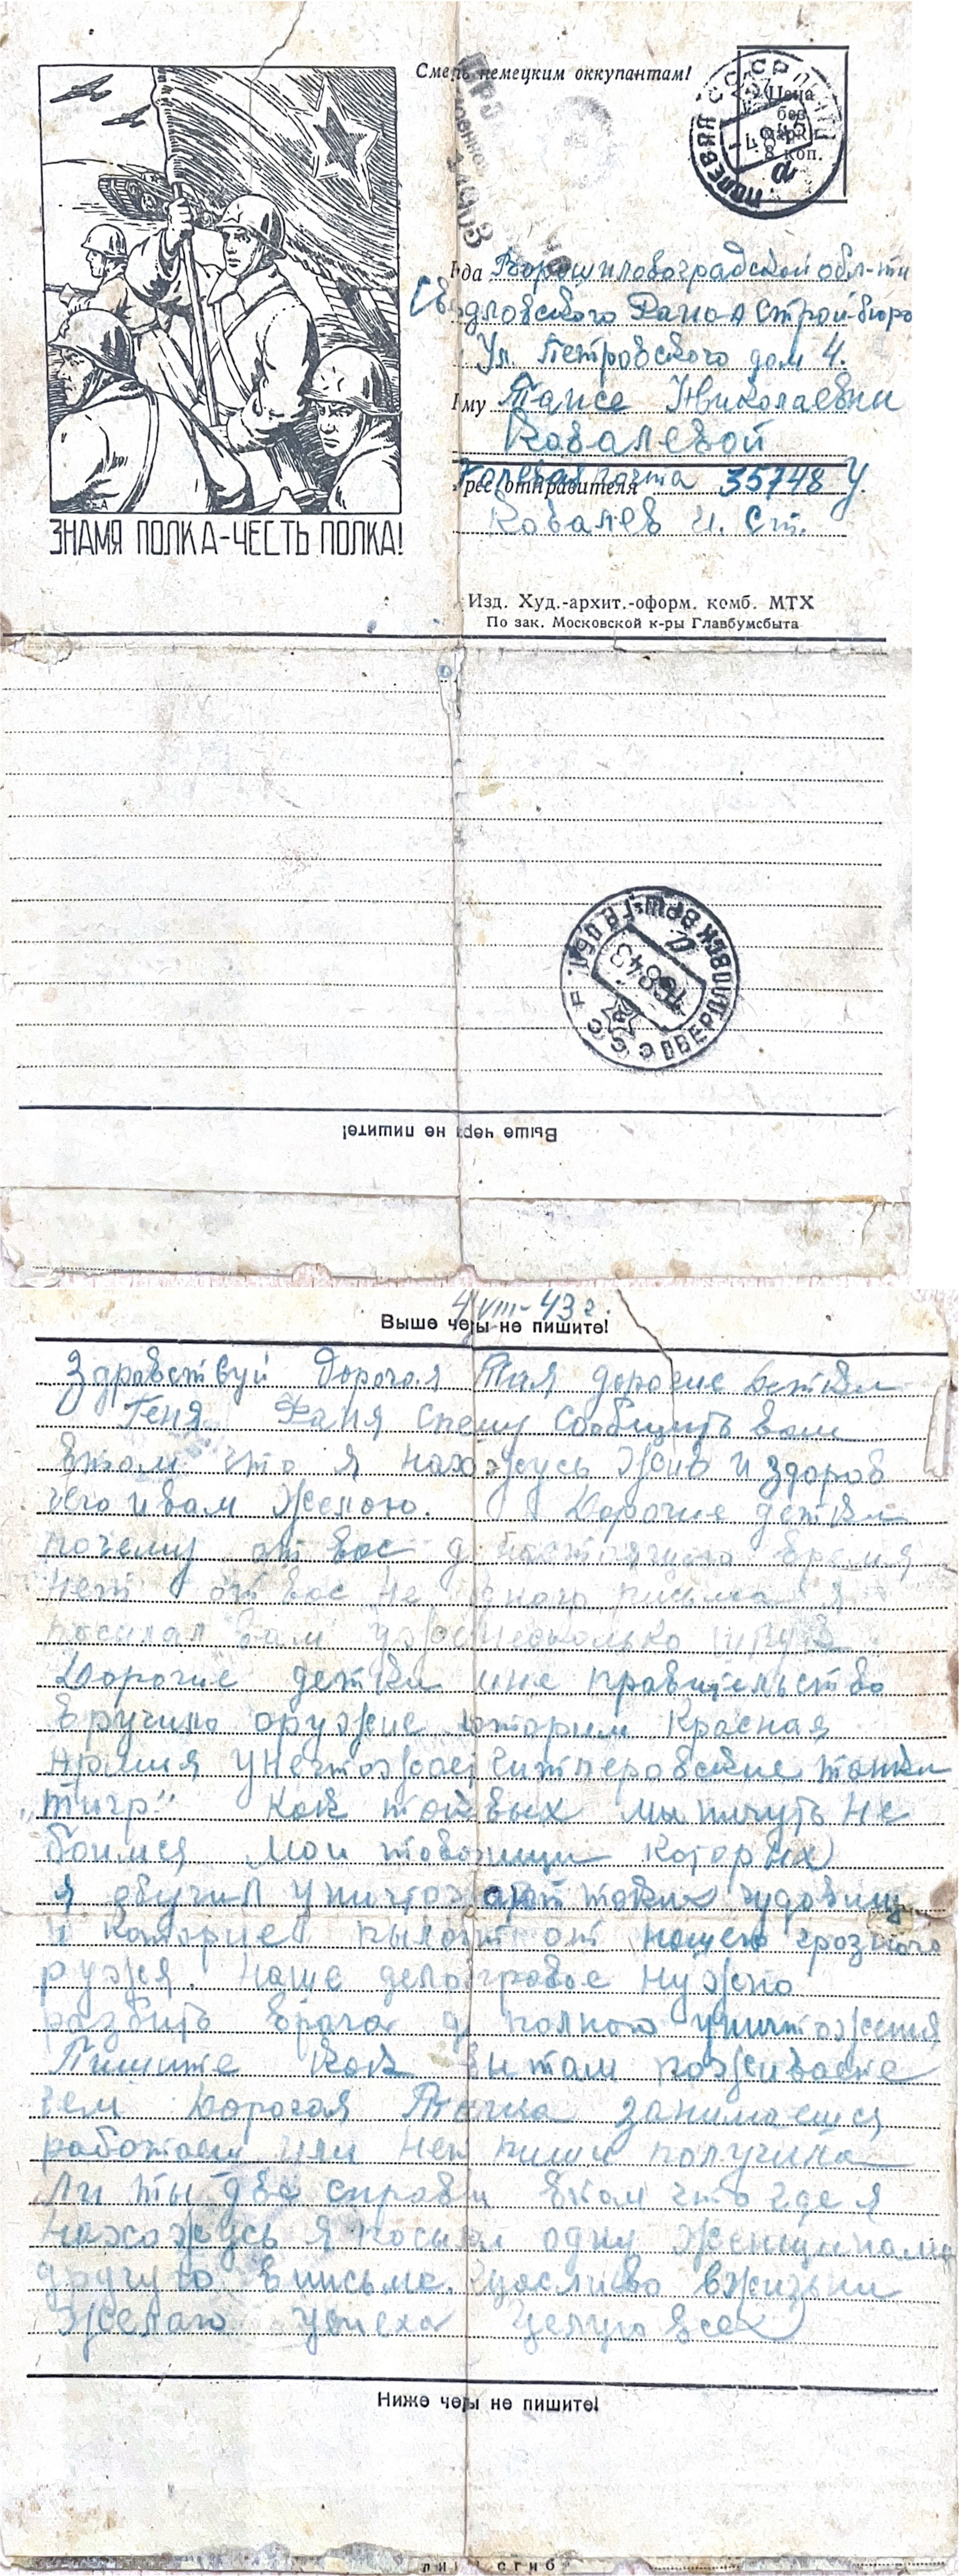 Смерть немецким оккупантам!
Цена
без
марки
8 коп.
ПОЛЕВАЯ
СССР
14903
Куда Ворошиловоградской обл-ти
Свердловского Раиоа Строй-бюро
Ул. Петровского дом 4.
Кому Таисе Николаевни
Ковалевой
Полевая почта 35748 У.
Адрес отправителя
Ковалев И. Ст.
ЗНАМЯ ПОЛКА-ЧЕСТЬ ПОЛКА!
Изд. Худ.-архит.-оформ. комб. МТХ
По зак. Московской к-ры Главбумсбыта
СССР
8 43
Выше черты не пишите!
4/VIII-43 г.
Выше черты не пишите!
Здравствуй Дорогая Тая дорогие детки
Геня Фаня Спешу Сообщить вам
втом что я нахожусь Жив и здоров
чего и вам Желаю. Дорогие детки
почему от вас до настоящего время
нет от вас не одного письма я
посылал вам уже несколько штук
Дорогие детки мне правительство
вручило оружие которим Красная
Армия унечтожает Гитлеровские танки
„тигр" Как таковых мы ничуть не
боимся Мои товарищи Которых
я обучил уничтожают таких чудовищ
и которые пылают от нашего грозного
ружя. Наше дело правое Нужно
разбить врага до полного уничтожения
Пишите Как вы там поживаете
чем Дорогая Таичка занимаешся
работаеш или нет пиши получила
ли ты две справки втом что где я
нахожусь я посылал одну Женщинами
другую в письме. Щасливо вжизни
Желаю успеха Целую всех
Ниже черты не пишите!
линия сгиба